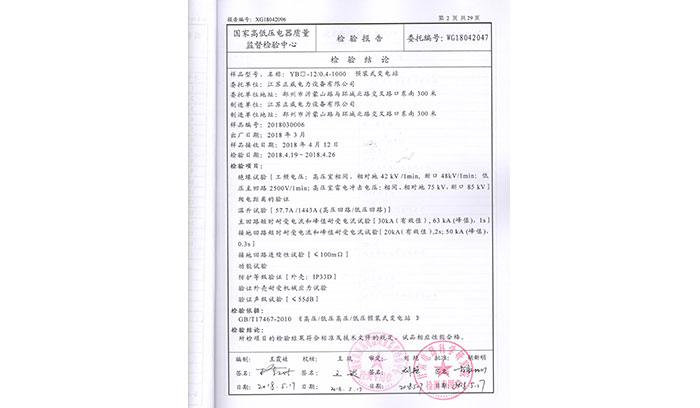 报告编号: XG18042006 第 2 页 共 29 页
国家高低压电器质量
监督检验中心
检 验 报 告
委托编号: WG18042047
检 验 结 论
样品型号、名称: YB□-12/0.4-1000 预装式变电站
委托单位: 江苏正威电力设备有限公司
委托单位地址: 邳州市沂蒙山路与环城北路交叉路口东南 300 米
制造单位: 江苏正威电力设备有限公司
制造单位地址: 邳州市沂蒙山路与环城北路交叉路口东南 300 米
样品编号: 2018030006
出厂日期: 2018 年 3 月
样品接收日期: 2018 年 4 月 12 日
检验日期: 2018.4.19~2018.4.26
检验项目:
绝缘试验[工频电压: 高压室相间、相对地 42 kV /1min, 断口 48kV/1min; 低
压主回路 2500V/1min; 高压室雷电冲击电压: 相间、相对地 75 kV、断口 85 kV]
爬电距离的验证
温升试验[57.7A /1443A (高压回路/低压回路)]
主回路短时耐受电流和峰值耐受电流试验[30kA (有效值), 63 kA (峰值), 1s]
接地回路短时耐受电流和峰值耐受电流试验[20kA (有效值),2s; 50 kA (峰值),
0.3s]
接地回路连续性试验[≤100mΩ]
功能试验
防护等级验证[外壳: IP33D]
验证外壳耐受机械应力试验
验证声级试验[≤55dB]
检验依据:
GB/T17467-2010 《高压/低压高压/低压预装式变电站 》
检验结论:
对检项目的检验结果符合标准及技术文件的规定, 试品相应性能合格。
编制: 王霞娃 校核: 审定: 批准:
签名: 签名: 签名: 签名:
日期: 2018.5.17 日期: 2018.5.17 日期: 日期: